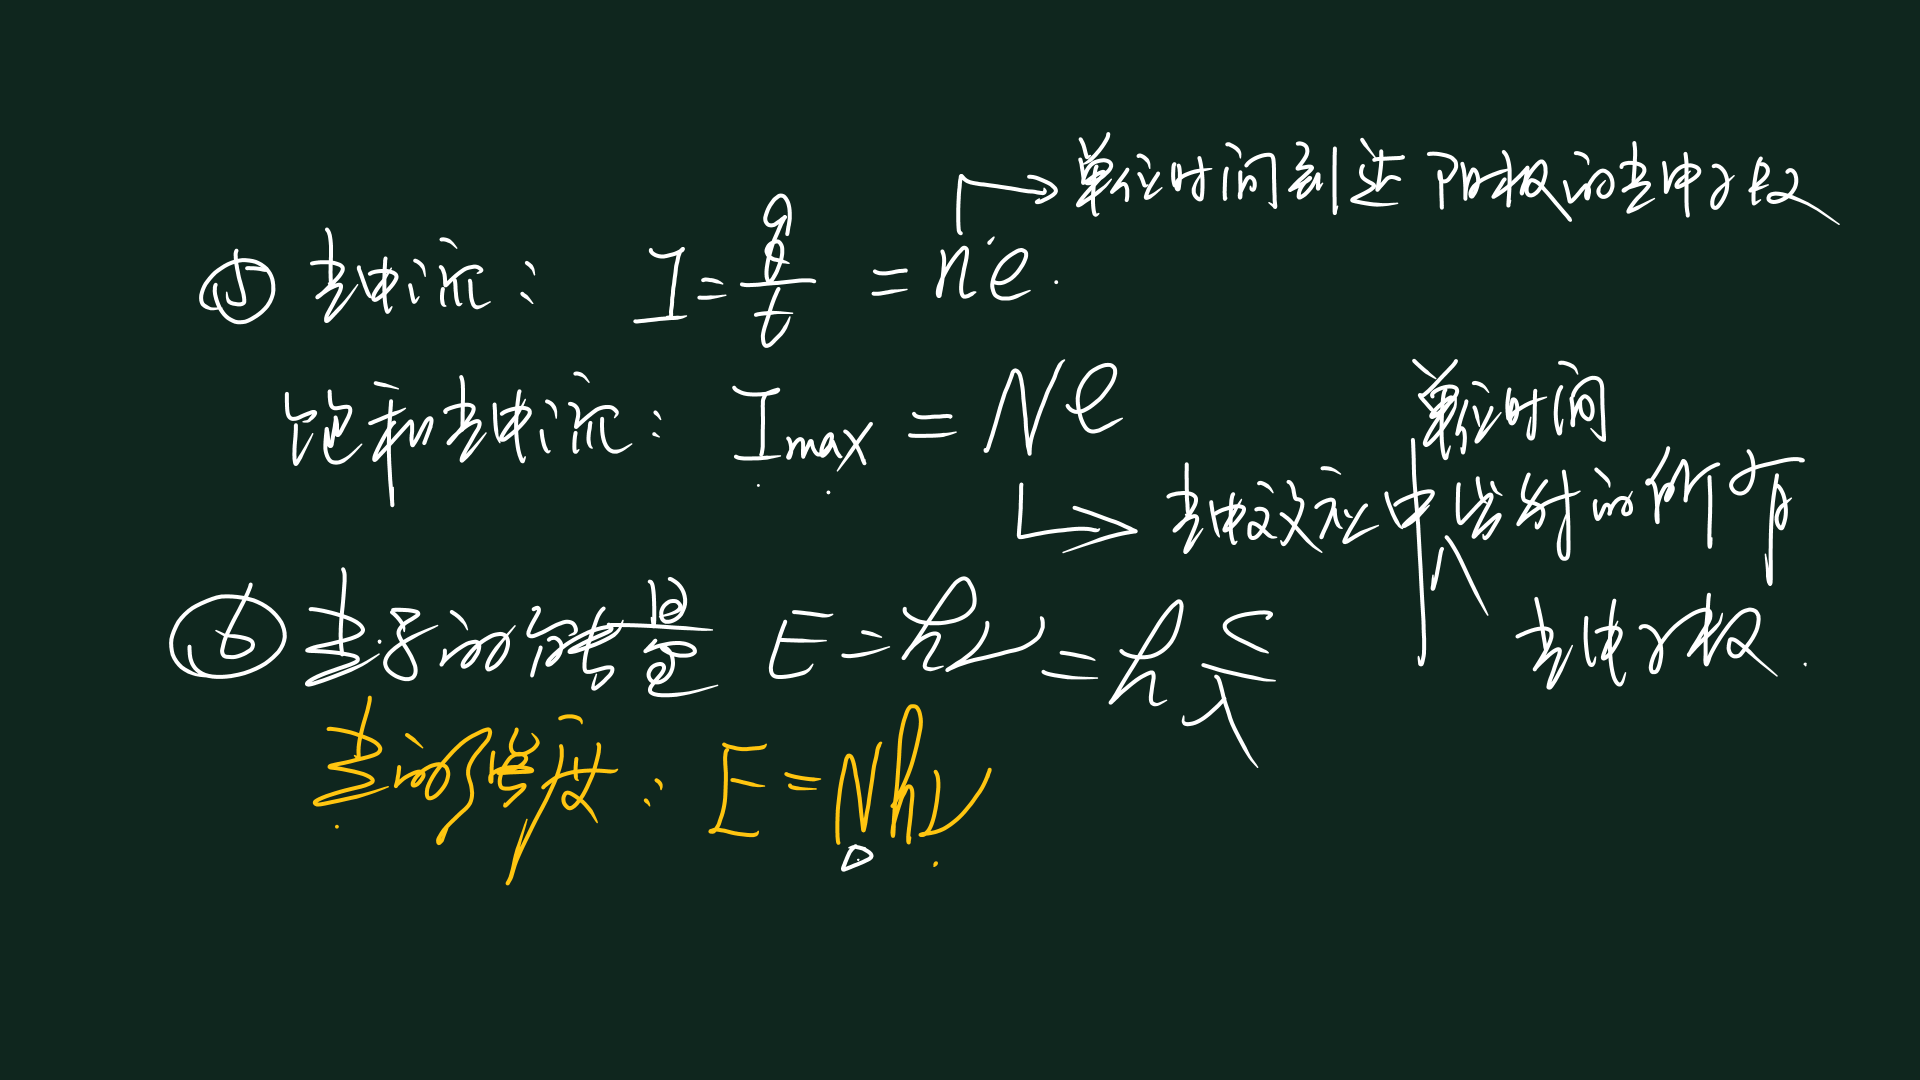 单位时间到达阳极的光电子数
⑤ 光电流: I = q/t = ne.
饱和光电流: Imax = Ne
单位时间
光电效应中发射的所有
光电子数.
⑥ 光子的能量 E = hν = h c/λ
光的强度: E = Nhν